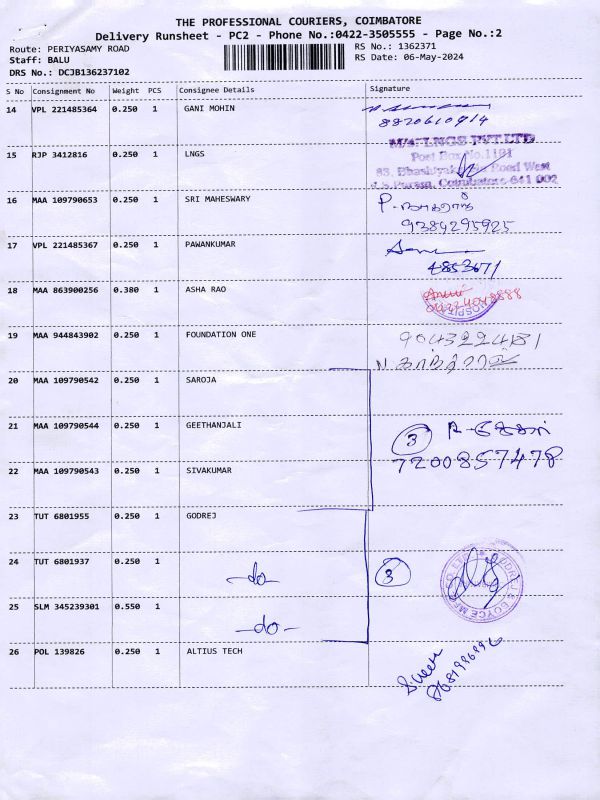 THE PROFESSIONAL COURIERS, COIMBATORE
Delivery Runsheet - PC2 - Phone No.:0422-3505555 - Page No.:2
Route: PERIYASAMY ROAD
Staff: BALU
DRS No.: DCJB136237102
RS No.: 1362371
RS Date: 06-May-2024
S No Consignment No Weight PCS Consignee Details Signature
14 VPL 221485364 0.250 1 GANI MOHIN
8820610914
15 RJP 3412816 0.250 1 LNGS
M/s. LNGS PVT.LTD
Post Box No.1191
Road West
R.S.Puram, Coimbatore-641 002
16 MAA 109790653 0.250 1 SRI MAHESWARY
9384295925
17 VPL 221485367 0.250 1 PAWANKUMAR
4853671
18 MAA 863900256 0.380 1 ASHA RAO
HOSPITAL
19 MAA 944843902 0.250 1 FOUNDATION ONE
9043224181
20 MAA 109790542 0.250 1 SAROJA
21 MAA 109790544 0.250 1 GEETHANJALI
3
7200857478
22 MAA 109790543 0.250 1 SIVAKUMAR
23 TUT 6801955 0.250 1 GODREJ
24 TUT 6801937 0.250 1
-do-
3
25 SLM 345239301 0.550 1
-do-
26 POL 139826 0.250 1 ALTIUS TECH